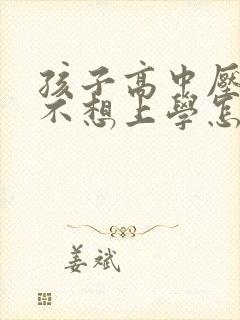 孩子高中壓
不想上學怎
姜斌